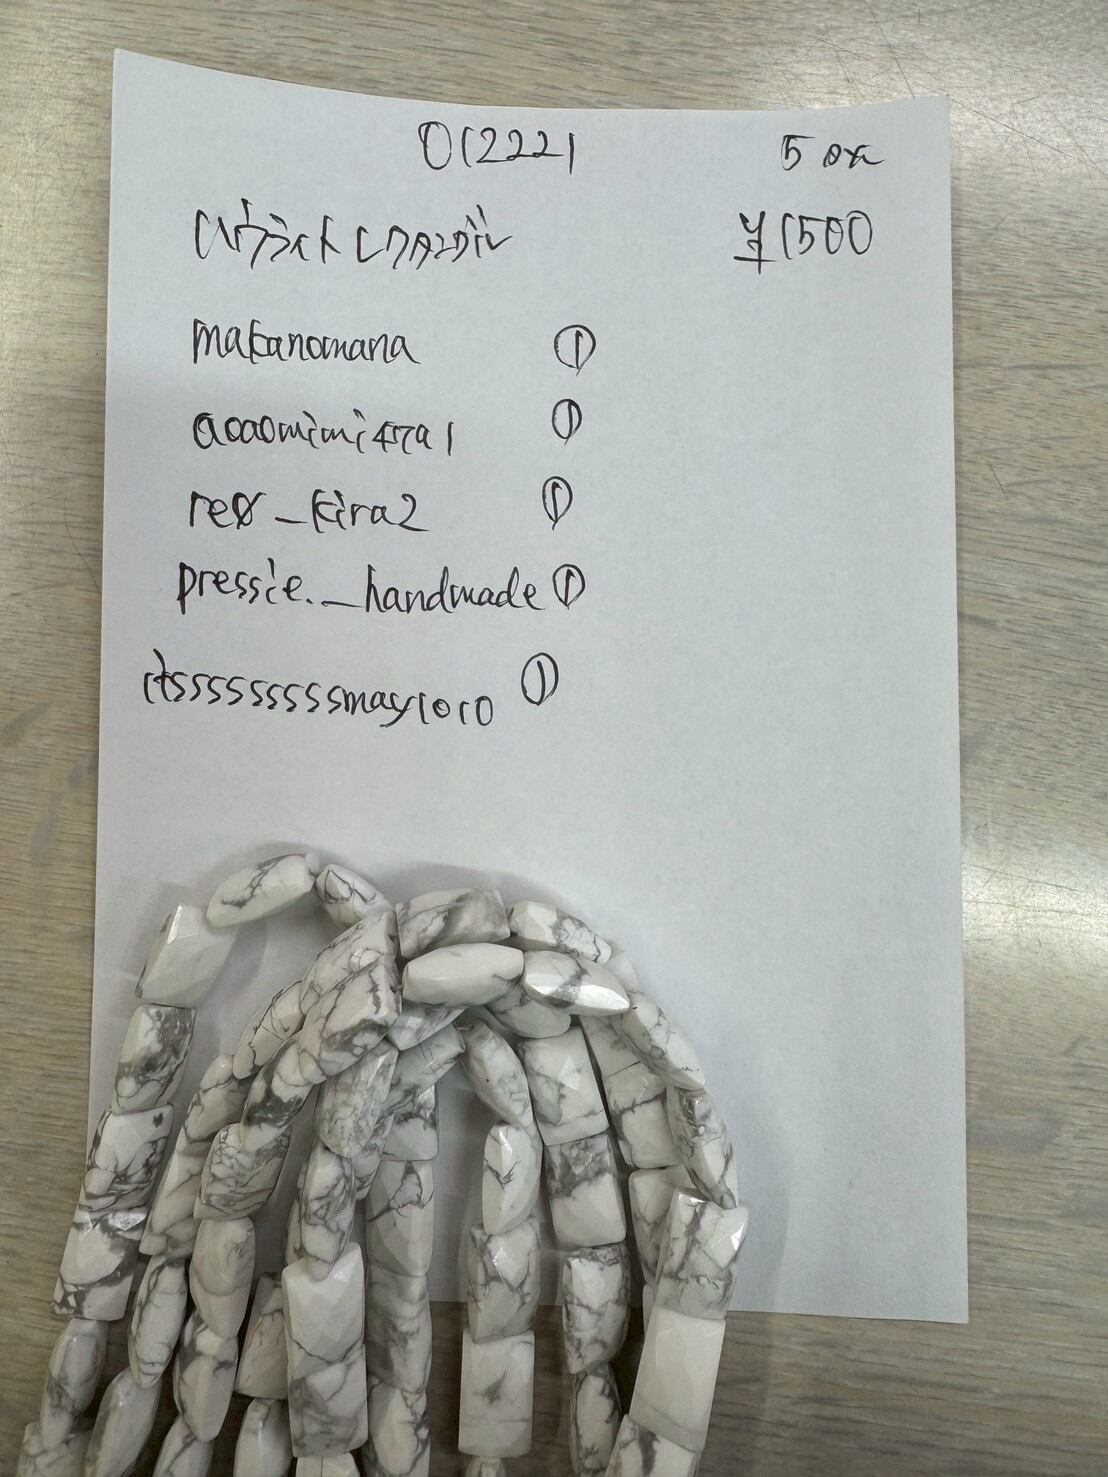 012221 5
ハウライト レクタングル ¥1500
makanomana ①
aoaomimi ①
re0_kira2 ①
pressie._handmade ①
itsssssssssmay1010 ①